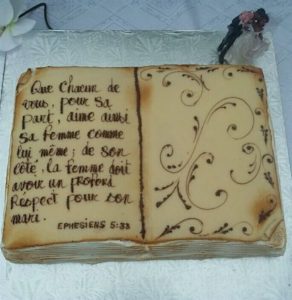 Que Chacun de
vous, pour sa
part, aime aussi
sa femme comme
lui même; de son
côté, la femme doit
avoir un profond
Respect pour son
mari.
EPHESIENS 5:33